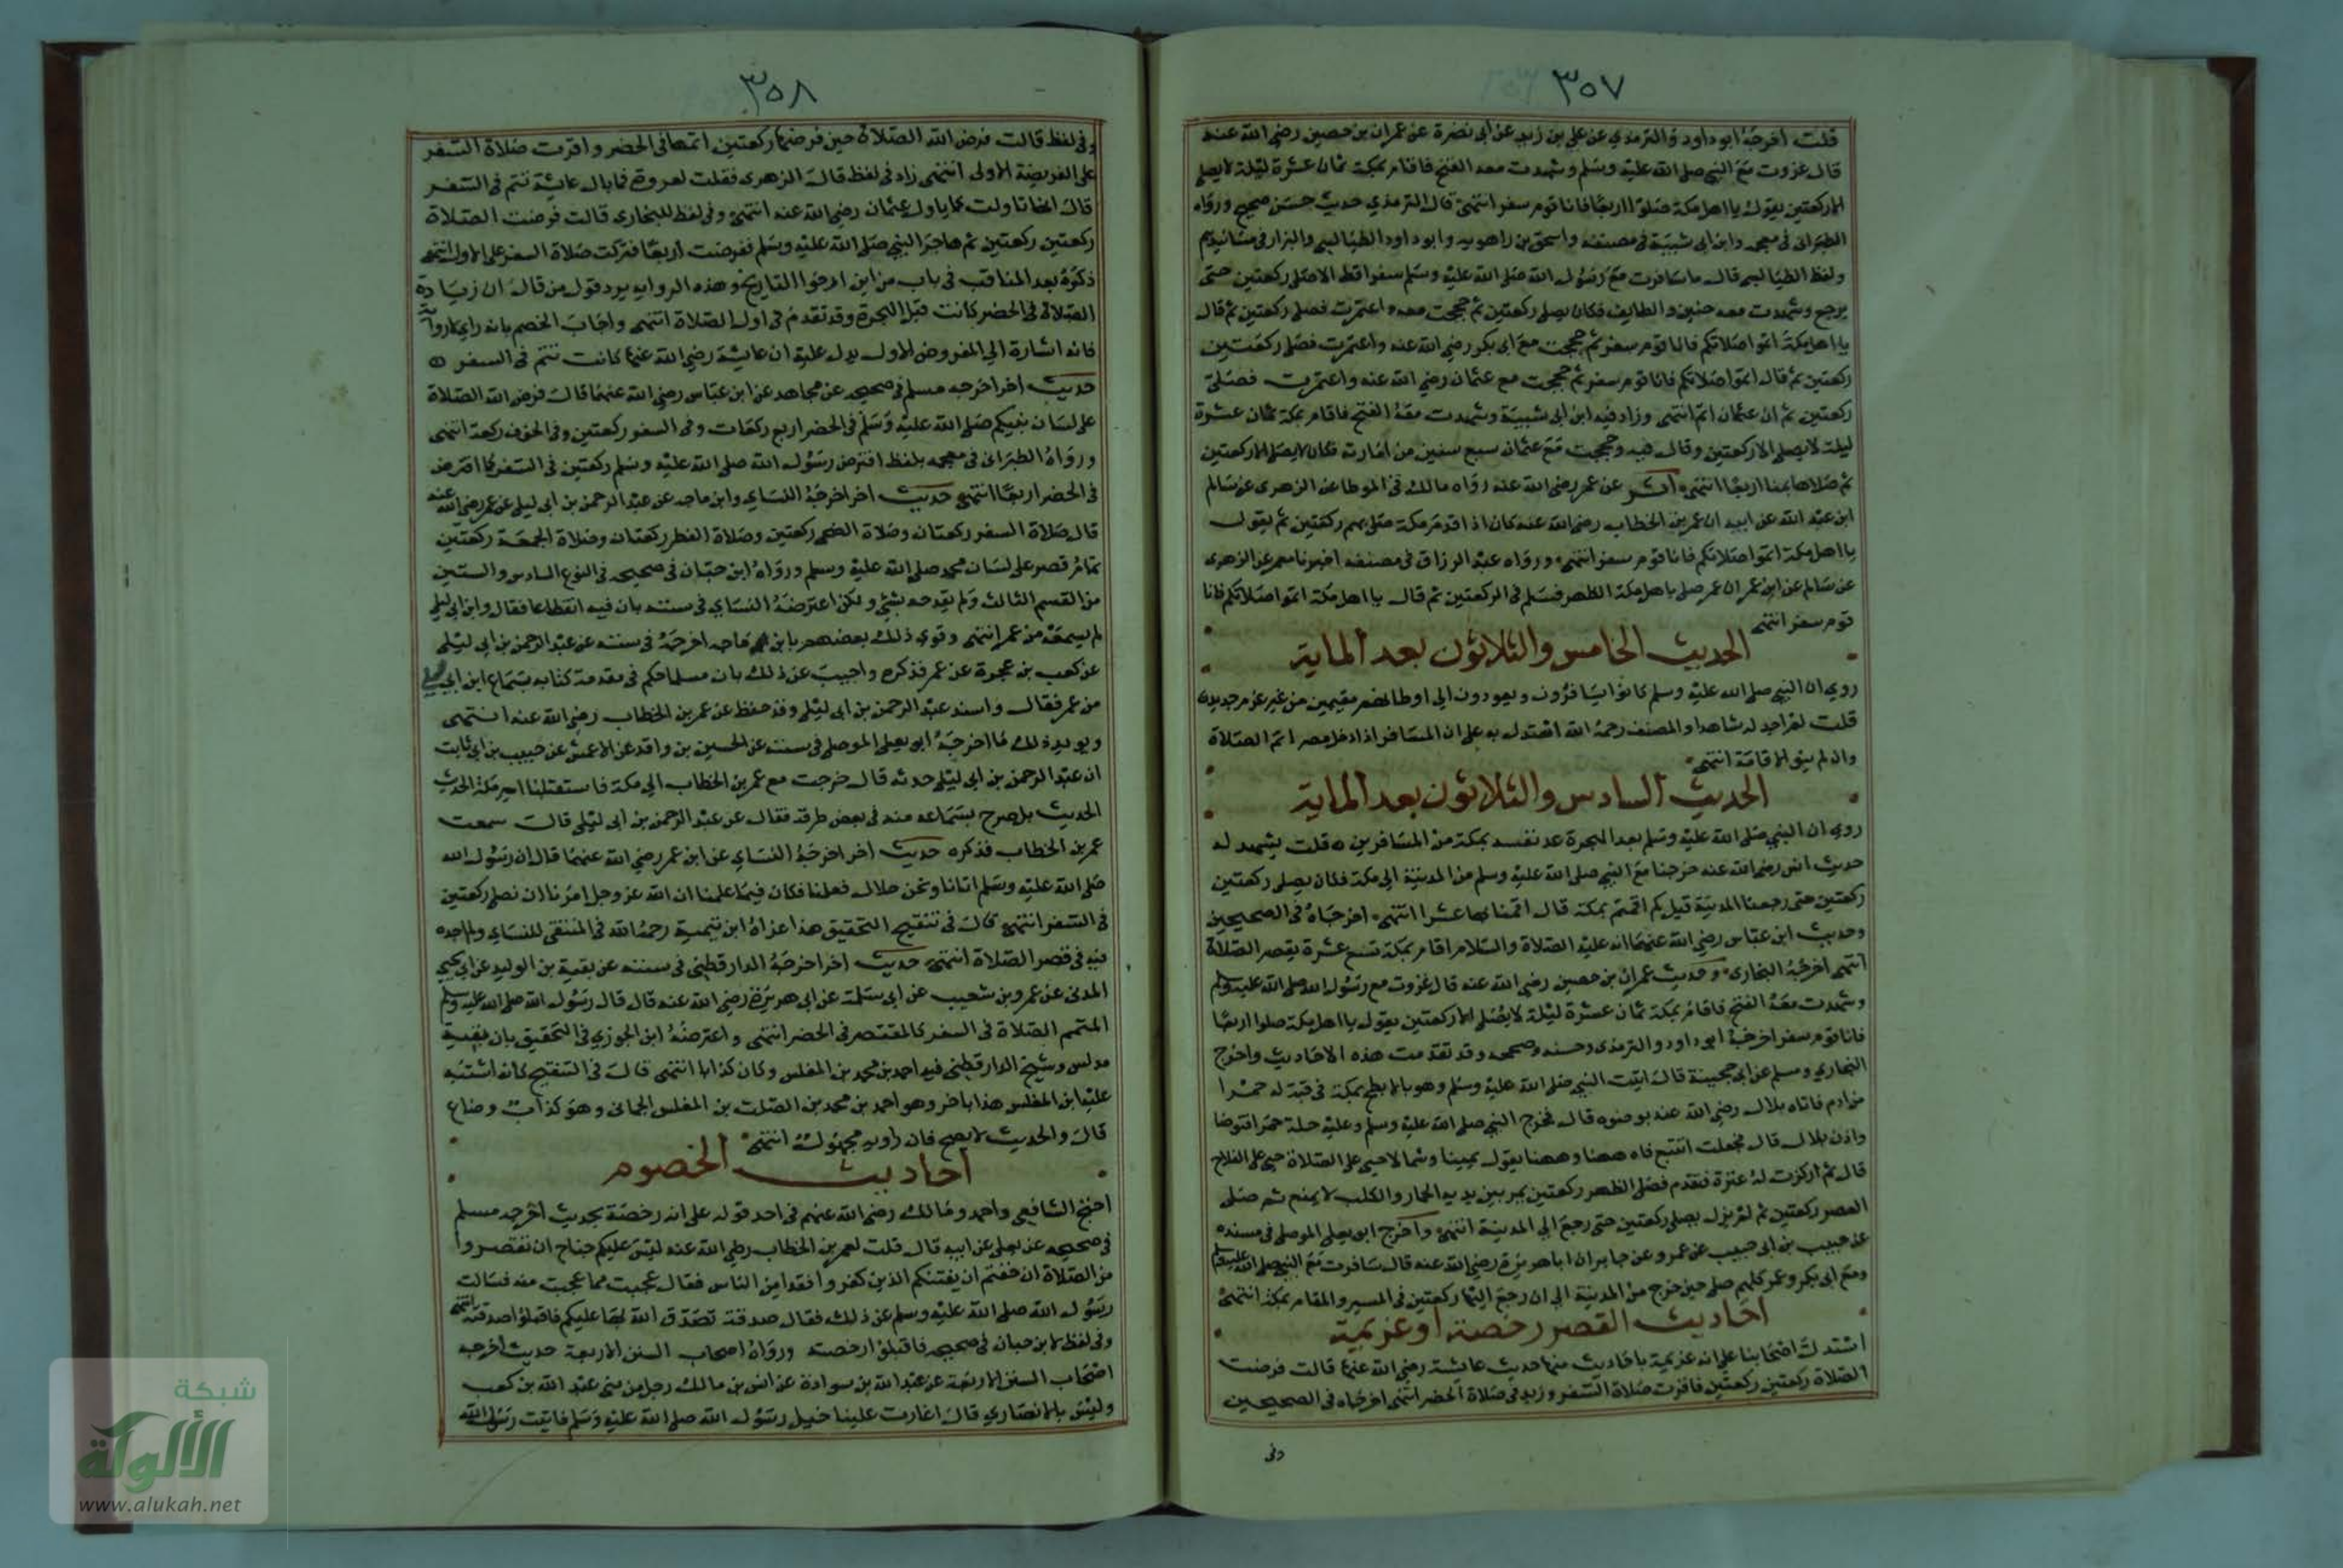 ٣٥٧
قلت اخرجه ابو داود والترمذي عن علي بن زيد عن ابي نضرة عن عمران بن حصين رضي الله عنه
قال غزوت مع النبي صلى الله عليه وسلم وشهدت معه الفتح فاقام بمكة ثمان عشرة ليلة لا يصلي
الا ركعتين يقول يا اهل مكة صلوا اربعا فانا قوم سفر انتهى قال الترمذي حديث حسن صحيح ورواه
الطبراني في معجمه وابن ابي شيبة في مصنفه واسحق بن راهويه وابو داود الطيالسي والبزار في مسانيدهم
ولفظ الطيالسي قال ما سافرت مع رسول الله صلى الله عليه وسلم سفرا قط الا صلى ركعتين حتى
يرجع وشهدت معه حنين والطايف فكان يصلي ركعتين ثم حججت معه واعتمرت فصلى ركعتين ثم قال
يا اهل مكة اتموا صلاتكم فانا قوم سفر ثم حججت مع ابي بكر رضي الله عنه واعتمرت فصلى ركعتين
ركعتين ثم قال اتموا صلاتكم فانا قوم سفر ثم حججت مع عثمان رضي الله عنه واعتمرت فصلى
ركعتين ثم ان عثمان اتم انتهى وزاد فيه ابن ابي شيبة وشهدت معه الفتح فاقام بمكة ثمان عشرة
ليلة لا يصلي الا ركعتين وقال فيه وحججت مع عثمان سبع سنين من امارته فكان لا يصلي الا ركعتين
ثم صلاها بمنا اربعا انتهى اثر عن عمر رضي الله عنه رواه مالك في الموطا عن الزهري عن سالم
ابن عبد الله عن ابيه ان عمر بن الخطاب رضي الله عنه كان اذا قدم مكة صلى بهم ركعتين ثم يقول
يا اهل مكة اتموا صلاتكم فانا قوم سفر انتهى ورواه عبد الرزاق في مصنفه اخبرنا معمر عن الزهري
عن سالم عن ابن عمر ان عمر صلى باهل مكة الظهر فسلم في الركعتين ثم قال يا اهل مكة اتموا صلاتكم فانا
قوم سفر انتهى
الحديث الخامس والثلاثون بعد الماية
روي ان النبي صلى الله عليه وسلم كانوا يسافرون ويعودون الى اوطانهم مقيمين من غير عزم جديد
قلت لم اجد له شاهدا والمصنف رحمه الله استدل به على ان المسافر اذا دخل مصر اتم الصلاة
وان لم ينو الاقامة انتهى
الحديث السادس والثلاثون بعد الماية
روي ان النبي صلى الله عليه وسلم بعد الهجرة عد نفسه بمكة من المسافرين قلت يشهد له
حديث انس رضي الله عنه خرجنا مع النبي صلى الله عليه وسلم من المدينة الى مكة فكان يصلي ركعتين
ركعتين حتى رجعنا المدينة قيل كم اقمتم بمكة قال اقمنا بها عشرا انتهى اخرجاه في الصحيحين
وحديث ابن عباس رضي الله عنهما انه عليه الصلاة والسلام اقام بمكة تسع عشرة يقصر الصلاة
انتهى اخرجه البخاري وحديث عمران بن حصين رضي الله عنه قال غزوت مع رسول الله صلى الله عليه وسلم
وشهدت معه الفتح فاقام بمكة ثمان عشرة ليلة لا يصلي الا ركعتين يقول يا اهل مكة صلوا اربعا
فانا قوم سفر اخرجه ابو داود والترمذي وحسنه وصححه وقد تقدمت هذه الاحاديث واخرج
البخاري ومسلم عن ابي جحيفة قال اتيت النبي صلى الله عليه وسلم وهو بالابطح بمكة في قبة له حمرا
من ادم فاتاه بلال رضي الله عنه بوضوه قال فخرج النبي صلى الله عليه وسلم وعليه حلة حمرا فتوضا
واذن بلال قال فجعلت اتتبع فاه ههنا وههنا يقول يمينا وشمالا حي على الصلاة حي على الفلاح
قال ثم اركزت له عنزة فتقدم فصلى الظهر ركعتين يمر بين يديه الحمار والكلب لا يمنع ثم صلى
العصر ركعتين ثم لم يزل يصلي ركعتين حتى رجع الى المدينة انتهى واخرج ابو يعلى الموصلي في مسنده
عن حبيب بن ابي حبيب عن عمرو عن جابر ان ابا هريرة رضي الله عنه قال سافرت مع النبي صلى الله عليه وسلم
ومع ابي بكر وعمر كلهم صلى حين خرج من المدينة الى ان رجع اليها ركعتين في المسير والمقام بمكة انتهى
احاديث القصر رخصة او عزيمة
استدل اصحابنا على انه عزيمة باحاديث منها حديث عايشة رضي الله عنها قالت فرضت
الصلاة ركعتين ركعتين فاقرت صلاة السفر وزيد في صلاة الحضر انتهى اخرجاه في الصحيحين
وفي
٣٥٨
وفي لفظ قالت فرض الله الصلاة حين فرضها ركعتين اتمها في الحضر واقرت صلاة السفر
على الفريضة الاولى انتهى زاد في لفظ قال الزهري فقلت لعروة فما بال عايشة تتم في السفر
قال انها تاولت كما تاول عثمان رضي الله عنه انتهى وفي لفظ للبخاري قالت فرضت الصلاة
ركعتين ركعتين ثم هاجر النبي صلى الله عليه وسلم ففرضت اربعا فتركت صلاة السفر على الاول انتهى
ذكره بعد المناقب في باب من اين ارخوا التاريخ وهذه الرواية يرد قول من قال ان زيادة
الصلاة في الحضر كانت قبل الهجرة وقد تقدم في اول الصلاة انتهى واجاب الخصم بانه راي
فانه اشارة الى المفروض الاول يدل عليه ان عايشة رضي الله عنها كانت تتم في السفر
حديث اخر اخرجه مسلم في صحيحه عن مجاهد عن ابن عباس رضي الله عنهما قال فرض الله الصلاة
على لسان نبيكم صلى الله عليه وسلم في الحضر اربع ركعات وفي السفر ركعتين وفي الخوف ركعة انتهى
ورواه الطبراني في معجمه بلفظ افترض رسول الله صلى الله عليه وسلم ركعتين في السفر كما افترض
في الحضر اربعا انتهى حديث اخر اخرجه النساي وابن ماجه عن عبد الرحمن بن ابي ليلى عن عمر رضي الله عنه
قال صلاة السفر ركعتان وصلاة الضحى ركعتين وصلاة الفطر ركعتان وصلاة الجمعة ركعتين
تمام قصر على لسان محمد صلى الله عليه وسلم ورواه ابن حبان في صحيحه في النوع السادس والستين
من القسم الثالث ولم يقدحه بشي ولكن اعترضه النساي في سننه بان فيه انقطاعا فقال وابن ابي ليلى
لم يسمعه من عمر انتهى وقوي ذلك بعضهم بان ابن ماجه اخرجه في سننه عن عبد الرحمن بن ابي ليلى
عن كعب بن عجرة عن عمر فذكره واجيب عن ذلك بان مسلما حكم في مقدمة كتابه بسماع ابن ابي ليلى
من عمر فقال واسند عبد الرحمن بن ابي ليلى وقد حفظ عن عمر بن الخطاب رضي الله عنه انتهى
ويويد ذلك ما اخرجه ابو يعلى الموصلي في سننه عن الحسين بن واقد عن الاعمش عن حبيب بن ابي ثابت
ان عبد الرحمن بن ابي ليلى حدثه قال خرجت مع عمر بن الخطاب الى مكة فاستقبلنا امير مكة الحديث
الحديث بل صرح بسماعه منه في بعض طرقه فقال عن عبد الرحمن بن ابي ليلى قالت سمعت
عمر بن الخطاب فذكره حديث اخر اخرجه النساي عن ابن عمر رضي الله عنهما قال ان رسول الله
صلى الله عليه وسلم اتانا ونحن ضلال فعلمنا فكان فيما علمنا ان الله عز وجل امرنا ان نصلي ركعتين
في السفر انتهى قال في تنقيح التحقيق هذا عزاه ابن تيمية رحمه الله في المنتقى للنساي ولم اجده
فيه في قصر الصلاة انتهى حديث اخر اخرجه الدارقطني في سننه عن بقية بن الوليد عن ابي يحيى
المدني عن عمرو بن شعيب عن ابي سلمة عن ابي هريرة رضي الله عنه قال قال رسول الله صلى الله عليه وسلم
المتمم الصلاة في السفر كالمقتصر في الحضر انتهى واعترضه ابن الجوزي في التحقيق بان بقية
مدلس وشيخ الدارقطني فيه احمد بن محمد بن المغلس وكان كذابا انتهى قال في التنقيح كانه اشتبه
عليه ابن المغلس هذا باخر وهو احمد بن محمد بن الصلت بن المغلس الحماني وهو كذاب وضاع
قال والحديث لا يصح فان راويه مجهول انتهى
احاديث الخصوم
احتج الشافعي واحمد ومالك رضي الله عنهم في احد قوله على انه رخصة بحديث اخرجه مسلم
في صحيحه عن يعلى عن ابيه قال قلت لعمر بن الخطاب رضي الله عنه ليس عليكم جناح ان تقصروا
من الصلاة ان خفتم ان يفتنكم الذين كفروا فقد امن الناس فقال عجبت مما عجبت منه فسالت
رسول الله صلى الله عليه وسلم عن ذلك فقال صدقة تصدق الله بها عليكم فاقبلوا صدقته انتهى
وفي لفظ لابن حبان في صحيحه فاقبلوا رخصته ورواه اصحاب السنن الاربعة حديث اخرجه
اصحاب السنن الاربعة عن عبد الله بن سوادة عن انس بن مالك رجل من بني عبد الله بن كعب
وليس بالانصاري قال اغارت علينا خيل رسول الله صلى الله عليه وسلم فاتيت رسول الله
شبكة
الألوكة
www.alukah.net